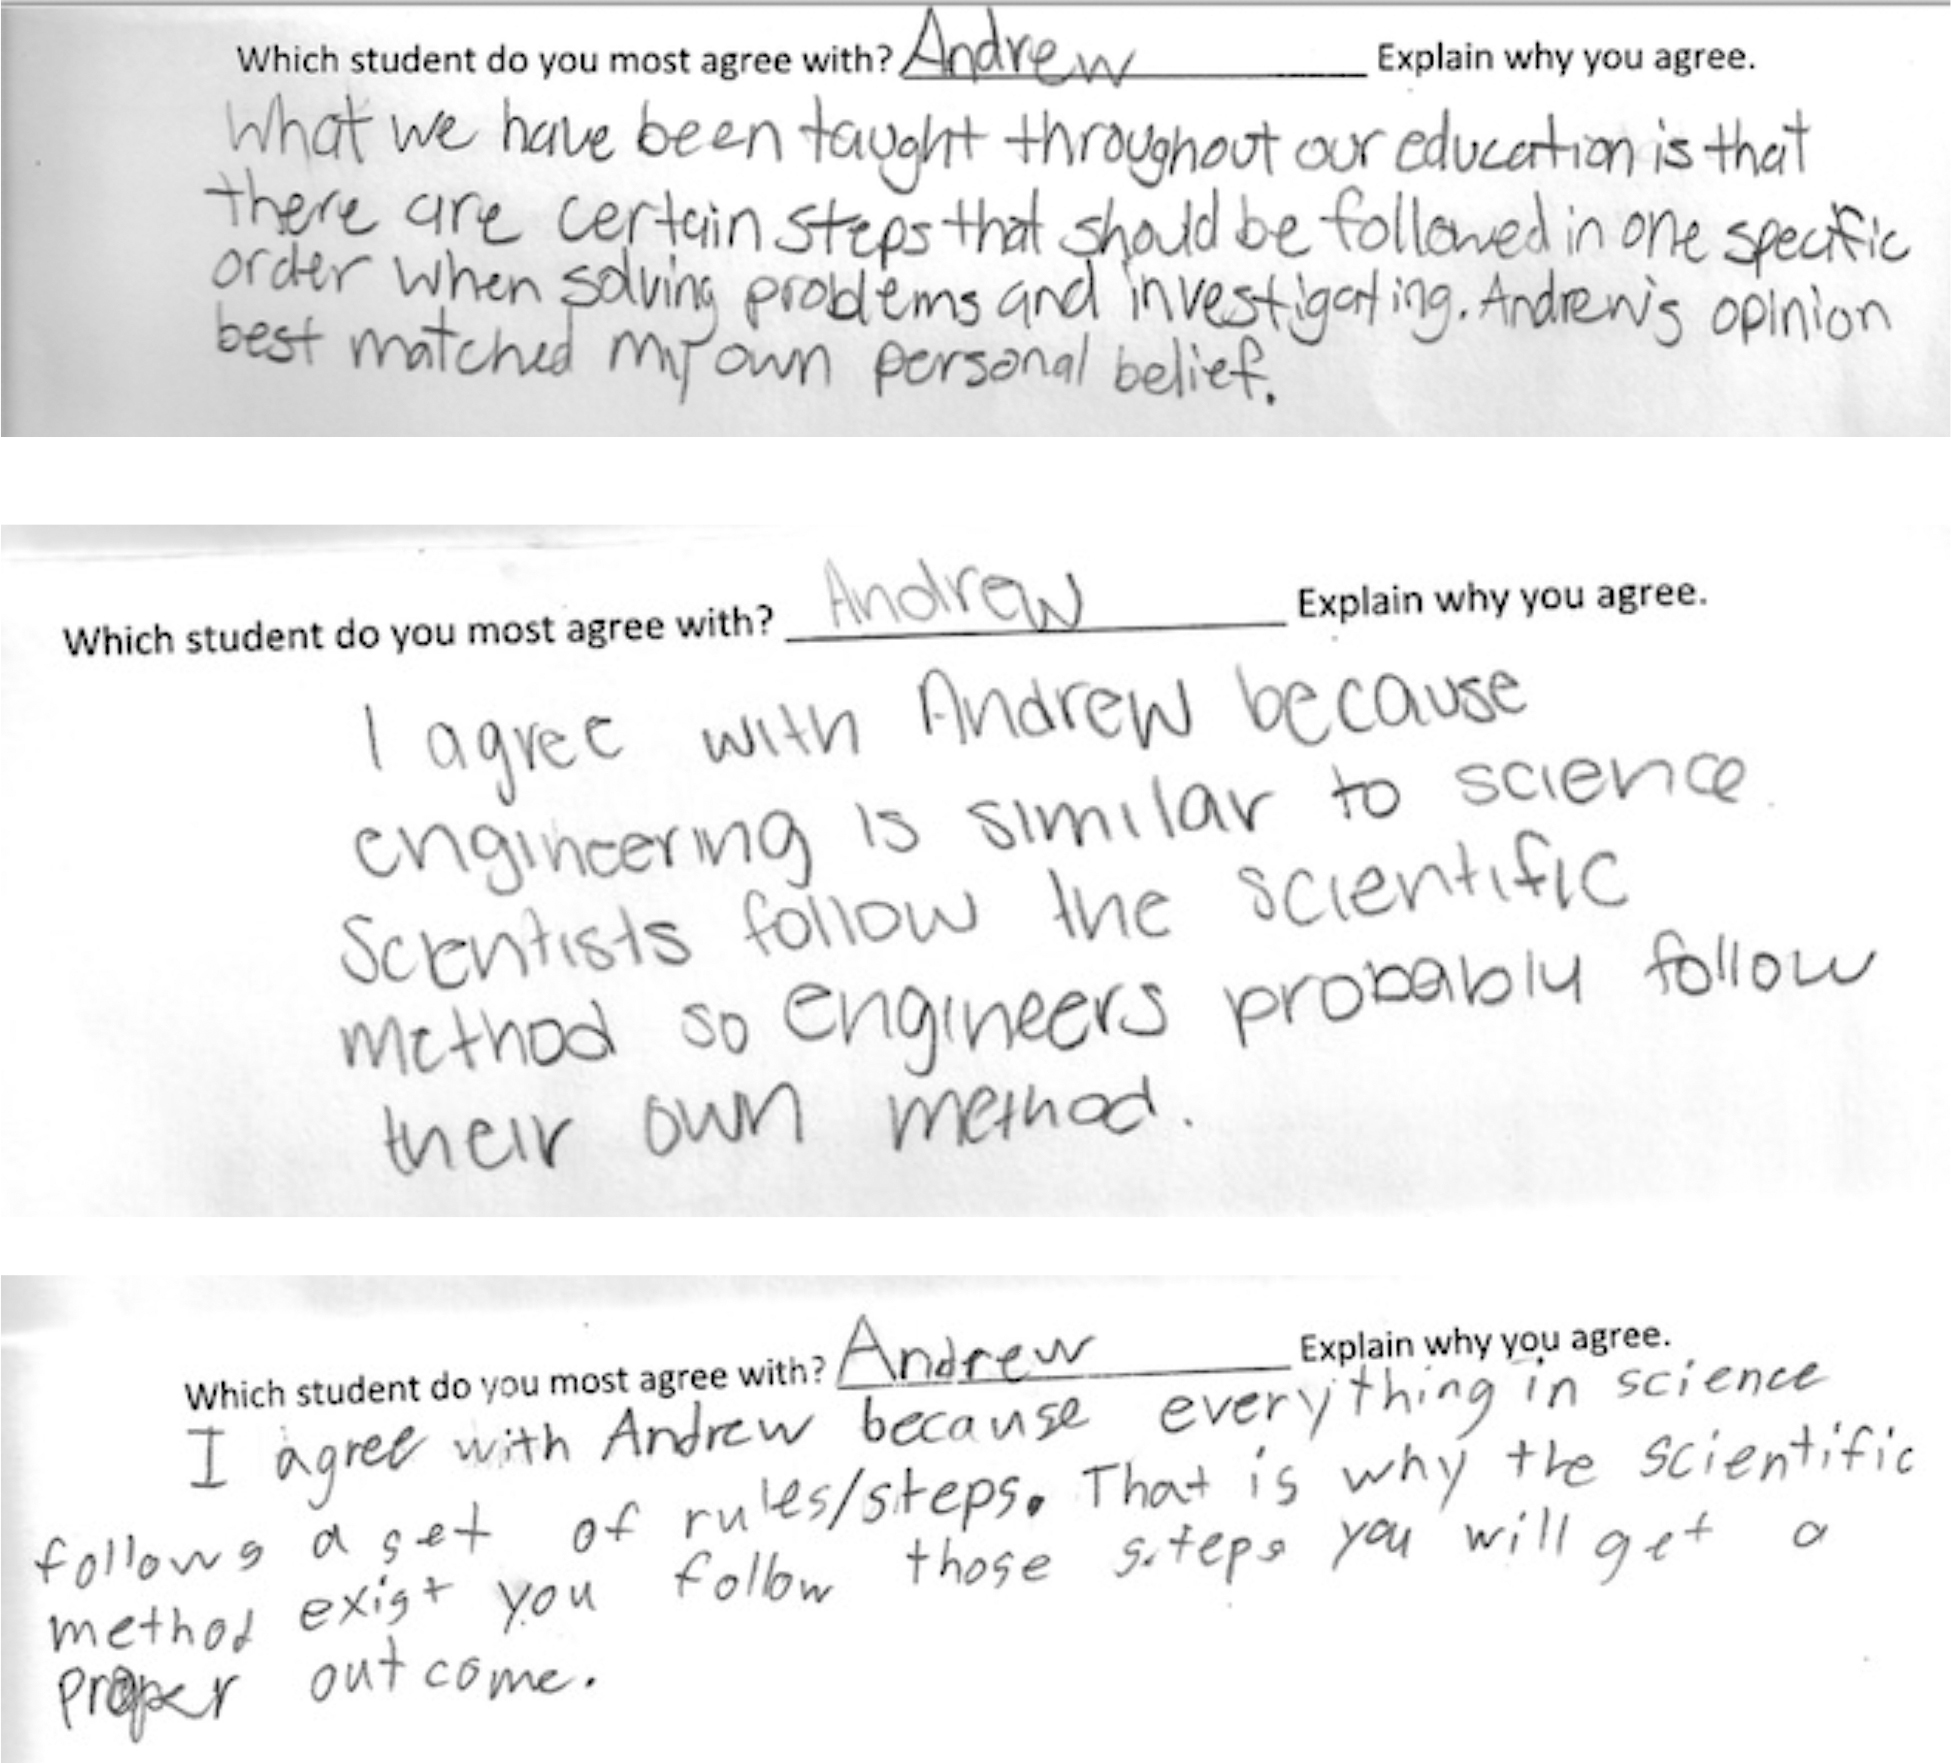 Which student do you most agree with? Andrew Explain why you agree.
What we have been taught throughout our education is that
there are certain steps that should be followed in one specific
order when solving problems and investigating. Andrew's opinion
best matched my own personal belief.
Which student do you most agree with? Andrew Explain why you agree.
I agree with Andrew because
engineering is similar to science.
Scientists follow the scientific
method so engineers probably follow
their own method.
Which student do you most agree with? Andrew Explain why you agree.
I agree with Andrew because everything in science
follows a set of rules/steps. That is why the scientific
method exist you follow those steps you will get a
proper outcome.